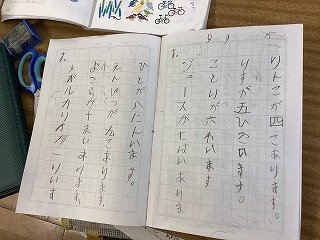 りんごが四こあります。
りすが五ひきいます。
ことりが六わいます
ジュースが七はいありま
す。
ひとが八にんいます。
えんぴつが九こあります。
おさらが十まいあります。
メガルカリオが一りいま
す。